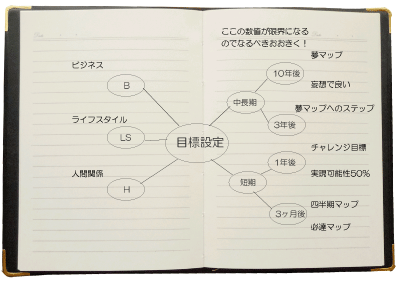 ビジネス
B
ライフスタイル
LS
人間関係
H
目標設定
ここの数値が限界になる
のでなるべきおおきく！
夢マップ
10年後
妄想で良い
中長期
夢マップへのステップ
3年後
チャレンジ目標
1年後
実現可能性50%
短期
四半期マップ
3ヶ月後
必達マップ